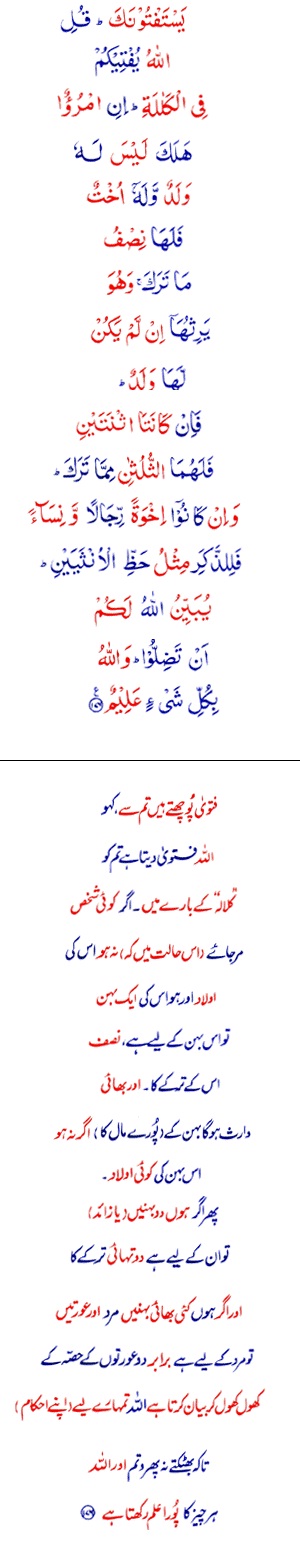 يَسْتَفْتُوْنَكَ ؕ قُلِ
اللّٰهُ يُفْتِيْكُمْ
فِى الْكَلٰلَةِ ؕ اِنِ امْرُؤٌا
هَلَكَ لَيْسَ لَهٗ
وَلَدٌ وَّلَهٗۤ اُخْتٌ
فَلَهَا نِصْفُ
مَا تَرَكَ ۚ وَهُوَ
يَرِثُهَاۤ اِنْ لَّمْ يَكُنْ
لَّهَا وَلَدٌ ؕ
فَاِنْ كَانَتَا اثْنَتَيْنِ
فَلَهُمَا الثُّلُثٰنِ مِمَّا تَرَكَ ؕ
وَاِنْ كَانُوْۤا اِخْوَةً رِّجَالًا وَّنِسَآءً
فَلِلذَّكَرِ مِثْلُ حَظِّ الْاُنْثَيَيْنِ ؕ
يُبَيِّنُ اللّٰهُ لَكُمْ
اَنْ تَضِلُّوْا ؕ وَاللّٰهُ
بِكُلِّ شَىْءٍ عَلِيْمٌ ۧ ﴿۱۷۶﴾
فتویٰ پُوچھتے ہیں تم سے، کہو
اللہ فتویٰ دیتا ہے تم کو
”کلالہ“ کے بارے میں۔ اگر کوئی شخص
مرجائے (اس حالت میں کہ) نہ ہو اس کی
اولاد اور ہو اس کی ایک بہن
تو اس بہن کے لیے ہے، نصف
اس کے ترکے کا۔ اور بھائی
وارث ہوگا بہن کے (پُورے مال کا) اگر نہ ہو
اس بہن کی کوئی اولاد۔
پھر اگر ہوں دو بہنیں (یا زائد)
تو ان کے لیے ہے دو تہائی ترکے کا
اور اگر ہوں کئی بھائی بہنیں مرد اور عورتیں
تو مرد کے لیے ہے برابر دو عورتوں کے حصّہ کے
کھول کھول کر بیان کرتا ہے اللہ تمہارے لیے (اپنے احکام)
تاکہ بھٹکتے نہ پھرو تم اور اللہ
ہر چیز کا پُورا علم رکھتا ہے ﴿۱۷۶﴾